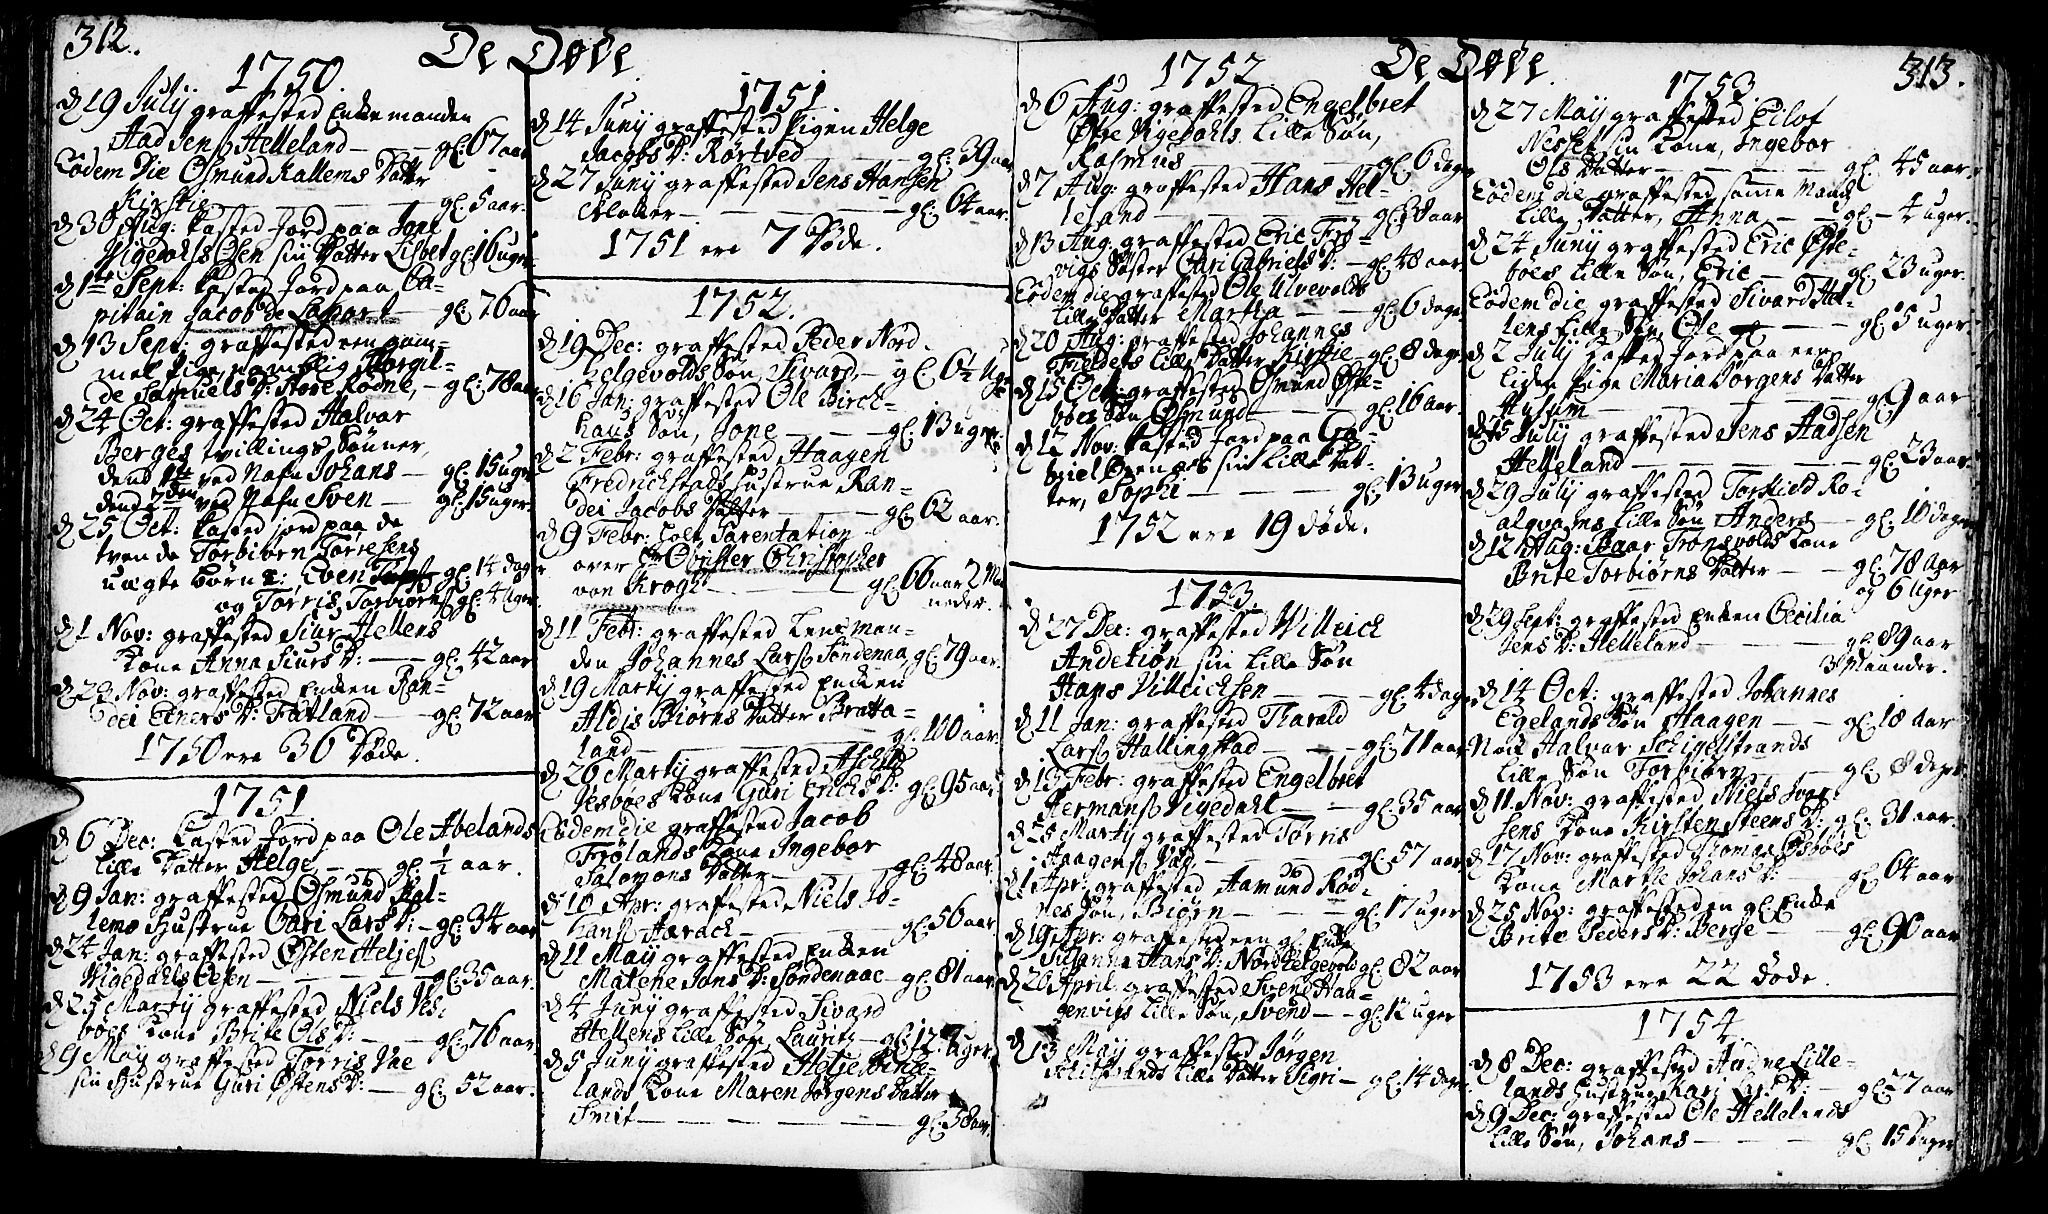 312.
De Døde
1750.
d 19 Julij graffested Enkemanden
Aad Jens Helleland — gl: 67 aar
Eodem Die Osmund Kallems Datter
Kirstie — gl: 5 aar.
d 30 Aug: kasted Jord paa Jone
Vigedahls Olsen sin Datter Lisbet gl: 16 uger
d 1te Sept: kasted Jord paa Ca-
pitain Jacob de — gl: 76 aar
d 13 Sept: graffested een gam-
mel Pige nemblig Torgil-
de Samuels D: Store Rodne, — gl: 78 aar
d 24 Oct: graffested Halvar
Berges tvillings Sønner,
dend 1te ved Nafn Johans — gl: 15 uger
dend 2den ved Nafn Sven — gl: 15 uger.
d 25 Oct: kasted jord paa de
tvende Torbiørn Tørresens
uægte børn: Even — gl: 14 dage
og Tørris Torbiørns gl: 4 uger.
d 1 Nov: graffested Siur Hellens
kone Anna Siurs D: — gl: 42 aar
d 24 Nov: graffested Enken Ran-
dei Einers D: Fatland — gl: 72 aar
1750 ere 30 Døde.
1751.
d 6 Dec: kasted Jord paa Ole Abelands
lille Datter Helge, — gl: ½ aar.
d 9 Jan: graffested Osmund Kal-
lems Hustrue Cari Lars D: — gl: 34 aar
d 24 Jan: graffested Østen Heljes
Vigedahls Eesen — gl: 35 aar.
d 25 Martij graffested Niels Ves-
boes kone Brite Ols D: — gl: 76 aar.
d 9 Maij graffested Tørris Vae
sin Hustrue Guri Østens D: — gl: 52 aar.
1751
d 14 Junij graffested Pigen Helge
Jacobs D: Rørtved — gl: 39 aar
d 27 Junij graffested Jens Hansen
Kloker — gl: 64 aar.
1751 ere 7 Døde.
1752.
d 19 Dec: graffested Peder Nord-
helgevolds Søn, Sivard, — gl: 6½ Uge
d 16 Jan: graffested Ole Birch-
hauS Søn, Jone — gl: 13 uger
d 2 Febr: graffested Haagen
Fredrichstads Hustrue Ran-
dei Jacobs Datter — gl: 62 aar.
d 9 Febr: holt Parentation
over Hr Obrister Christopher
von Krogh — gl: 66 aar 2 Maa-
neder.
d 11 Febr: graffested Lensman-
den Johannes Lars Søndenaa, gl: 79 aar.
d 19 Martij graffested Enken
Aldis Biørns Datter Bratta-
land — gl. 100 aar.
d 26 Martij graffested
Vesboes kone Guri Erichs D: gl: 95 aar
Eodem die graffested Jacob
Frølands kone Ingebor
Salomons Datter — gl: 48 aar.
d 10 Apr: graffested Niels Jo-
hans Aarach — gl: 56 aar
d 11 Maij graffested Enken
Malene Jons D: Søndenaae — gl: 81 aar
d 4 Junij graffested Sivard
Hellens lille Søn, Lauritz — gl: 12 Uger
d 5 Junij graffested Helje
lands kone Maren Jørgens Datter
Smit — gl: 58 aar.
De Døde.
313.
1752
d 6 Aug: graffested Engelbret
Øfre Vigedahls lille Søn,
Rasmus — gl: 6 dage
d 7 Aug: graffested Hans Hel-
leland — gl: 38 aar
d 13 Aug: graffested Eric Frø-
vigs Søster Cari Gabriels D: — gl: 48 aar.
Eodem die graffested Ole Ulvevolds
lille Datter Martha — gl: 6 dage
d 20 Aug: graffested Johannes
Fieldets lille Datter Kirstie — gl: 8 dage
d 15 Oct: graffested Osmund Øste-
boes Søn Osmund — gl: 16 aar.
d 12 Nov: kasted Jord paa Ga-
briel sin lille Dat-
ter, Sophi — gl: 13 uger
1752 ere 19 døde.
1753.
d 27 Dec: graffested Villeich
Andetiøn sin lille Søn
Hans Villeichsen — gl: 4 dage
d 11 Jan: graffested Tharald
Lars Hallingstad — gl: 71 aar
d 13 Febr: graffested Engelbret
Hermans Vigedahl — gl: 35 aar
d 25 Martij graffested Tørris
Haagens — gl: 57 aar
d 1 Apr: graffested Aamund Rød-
nes Søn, Biørn — gl: 17 uger
d 19 Apr: graffested een gl: Enke
Susanna Hans D: Nordhelgevold gl: 82 aar
d 20 April: graffested Svend Haa-
genvigs lille Søn, Svend — gl: 12 uger
d 13 Maij graffested Jørgen
lille Datter Sigri — gl: 14 dage
1753
d 27 Maij graffested Eilof
Nesset sin kone, Ingebor
Ols Datter — gl: 45 aar.
Eodem die graffested samme Mand
lille Datter, Anna, — gl — 4 uger.
d 24 Junij graffested Eric Øste-
boes lille Søn, Eric — gl: 23 uger.
Eodem Die graffested Sivard Hel-
lens lille Søn Ole — gl: 5 uger
d 2 Julij kasted Jord paa een
liden Pige Maria Jørgens Datter
Husum — gl: 9 aar
d 15 Julij graffested Jens Aadsen
Helleland — gl: 23 aar
d 29 Julij graffested Torkield Ro-
alqvams lille Søn Anders — gl: 10 dage
d 12 Aug: Baar Tronsvolds kone
Brite Torbiørns Datter — gl: 78 Aar
og 6 Uger
d 29 Sept: graffested Enken Cecilia
Jens D: Helleland — gl: 89 aar
3 Maaneder.
d 14 Oct: graffested Johannes
Egelands Søn Haagen — gl: 18 Aar
Nok Halvar Schigelstrands
lille Søn Torbiørn — gl: 8 dage.
d 11 Nov: graffested Niels Iver-
sens kone Kirsten Steens D: gl: 31 aar.
d 17 Nov: graffested Thomas Esboes
kone Marthe Johans D: — gl: 64 aar
d 25 Nov: graffested en gl: Enke
Brite Peders D: Berge — gl: 90 aar
1753 ere 22 døde.
1754
d 8 Dec: graffested Andre Lille-
lands Hustrue Kari D: — gl: 57 aar
d 9 Dec: graffested Ole Hellelands
lille Søn, Johans — gl: 15 uger